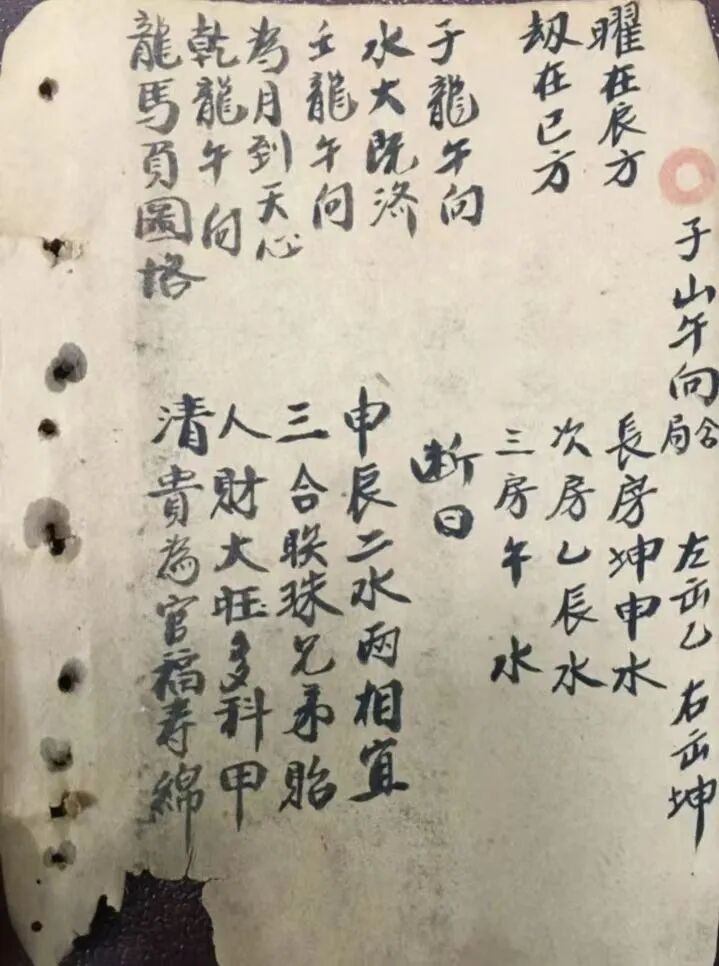 子山午向合局 左乙 右坤
曜在辰方
劫在巳方
子龍午向
水火既济
壬龍午向
為月到天心
乾龍午向
龍馬負圖格
長房坤申水
次房乙辰水
三房午水
断曰
申辰二水兩相宜
三合联珠兄弟貽
人財大旺多科甲
清貴為官福寿綿